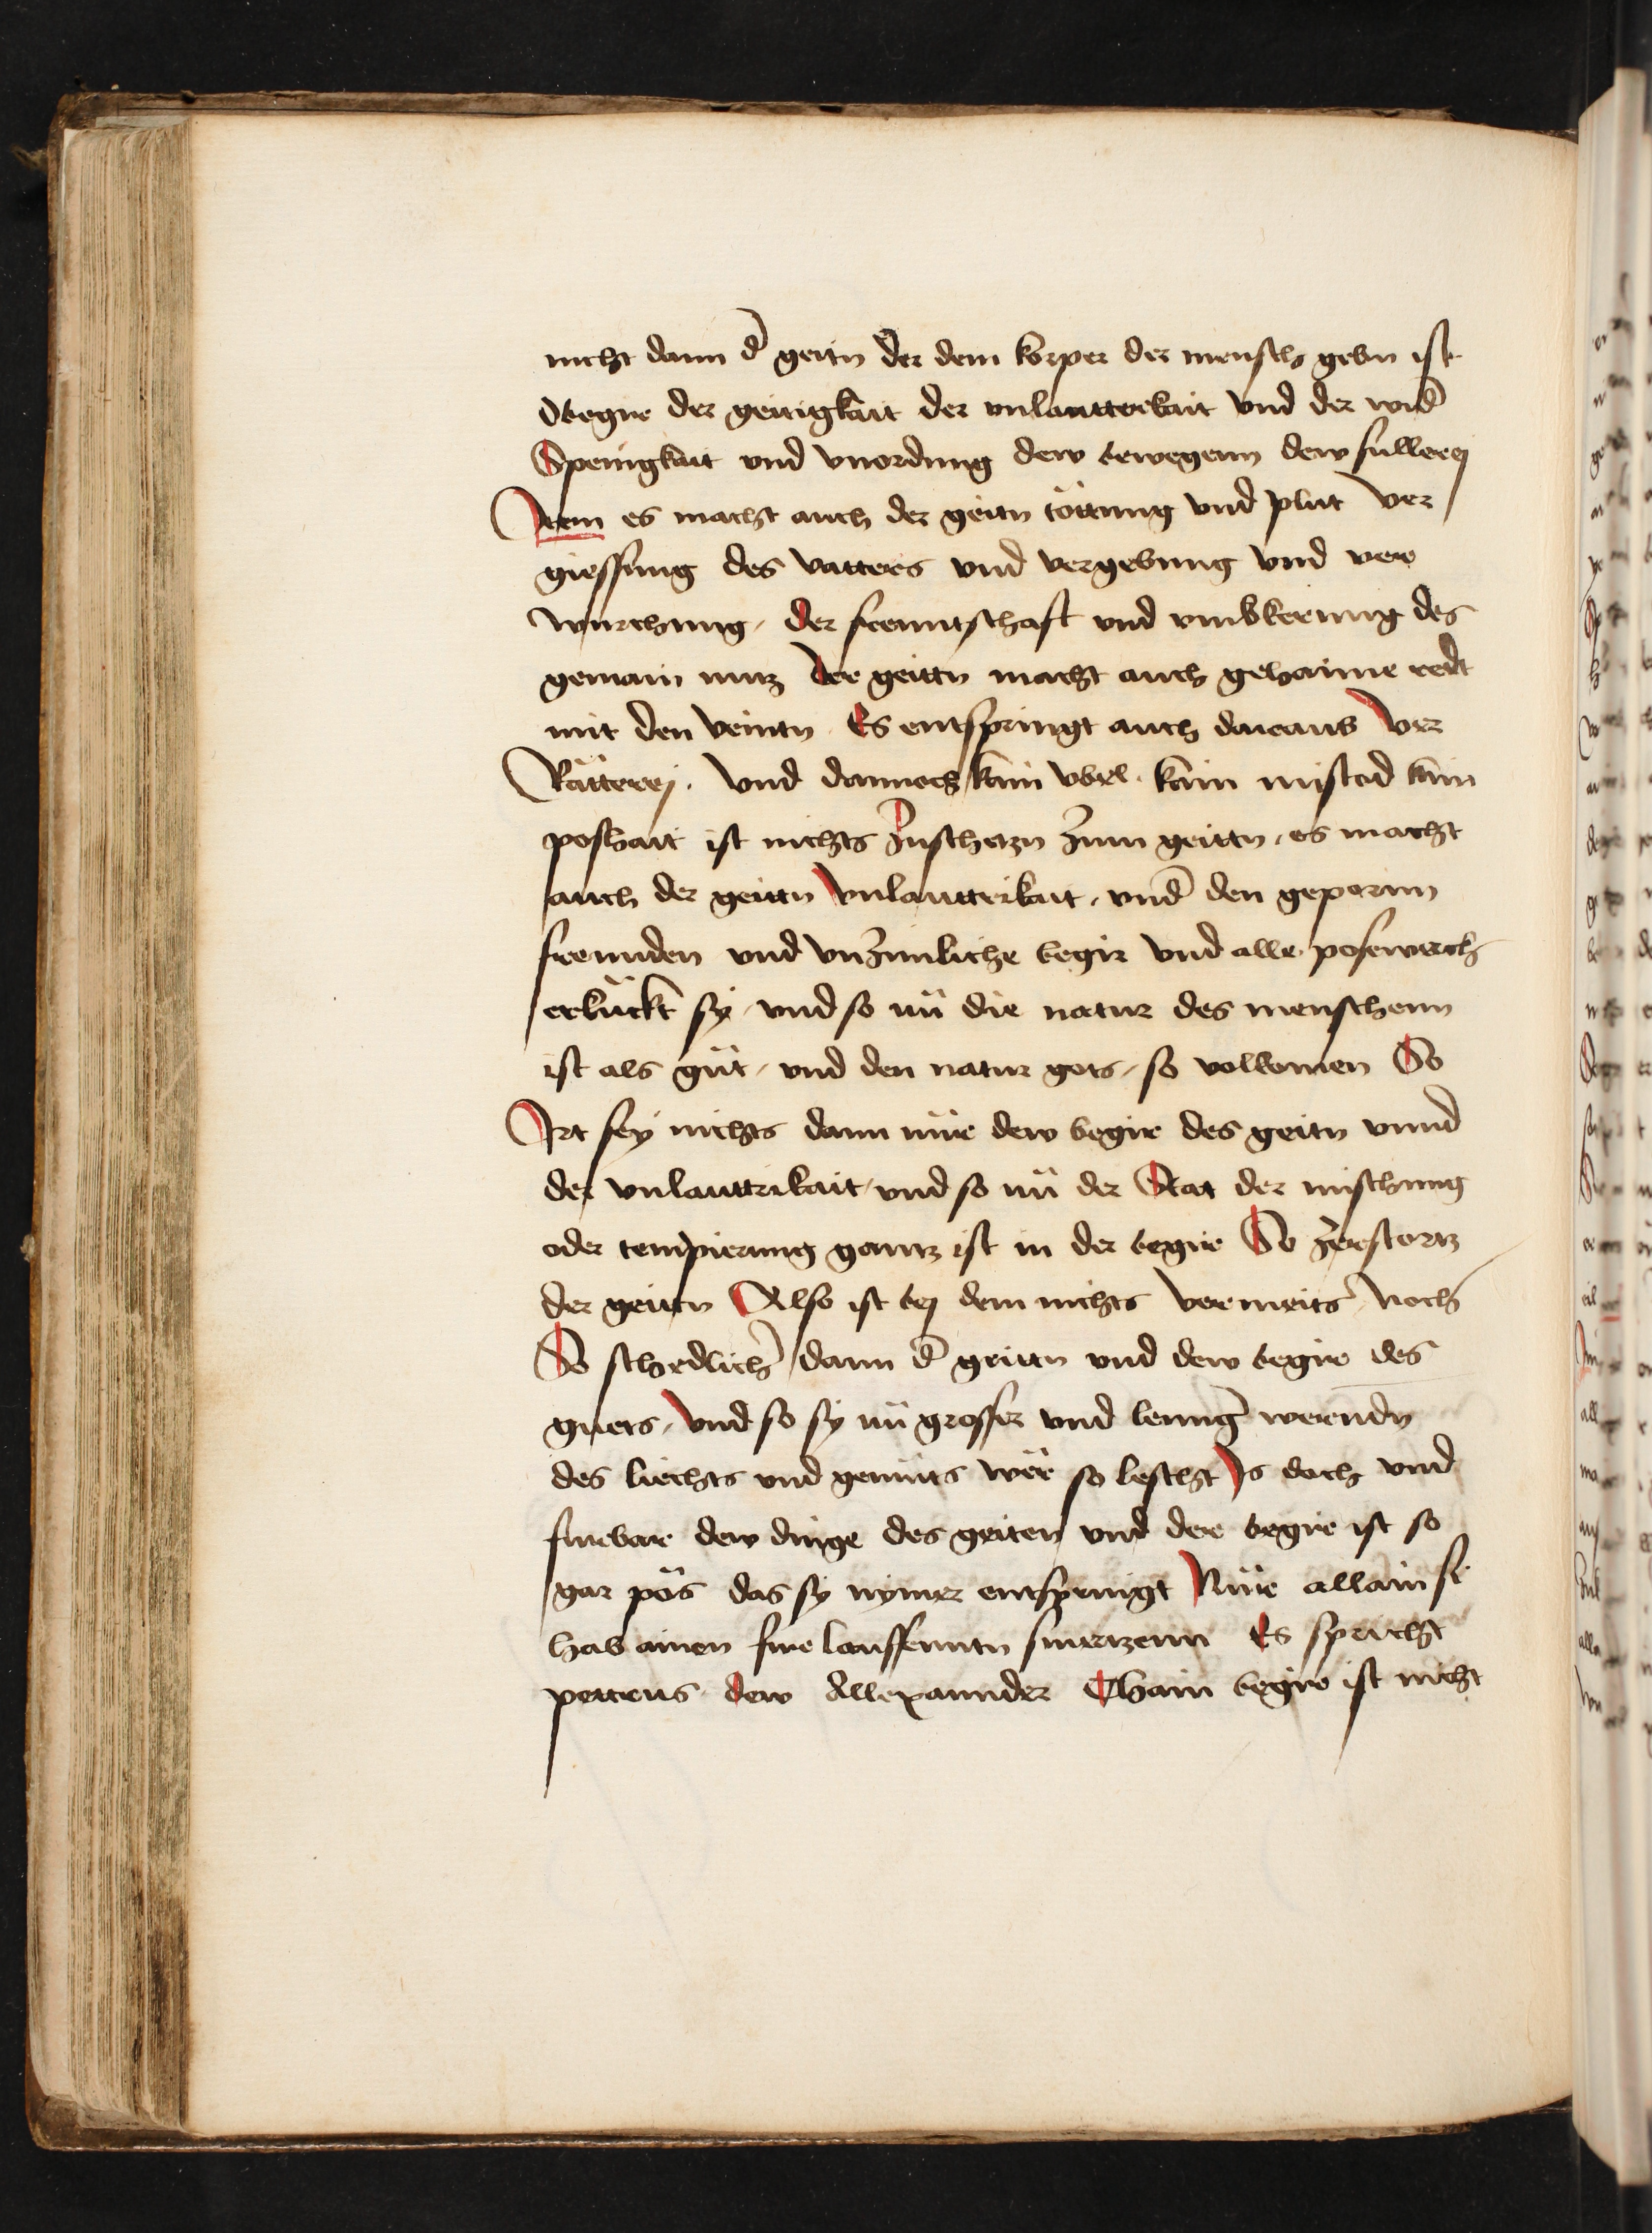 nicht dann d' geitn der dem korper der mensch gebn ist
dbegire der geitigkait der vnlautterkait vnd der wid'
Spenigkait vnd vnordnung dew bewegenn dew fullerej
Item es macht auch der geitn töttung vnd plut ver
giessung des vatters vnd vergebung vnd ver
wurchung / der freuntschaft vnd vmbkerung des
gemain nutz der geittn macht auch gehaime redt
mit den veintn Es entspringt auch daraus ver
Rätterej . vnd dannoch kain vbel . kain mistad kain
poshait ist nichts zuschetzn zum geittn / es macht
auch der geittn vnlauttrikait / vnd' den gepornn
freunden vnd vnzimliche begir vnd alle posewerch
erkückt sy / vnd so nü die natur des menschenn
ist als güt / vnd den natur gots / so volkomen So
Irt sey nichts dann nüe dew begir des geitn vnnd
der vnlauttrikait / vnd so nü der Stat der mischung
oder tempierung gantz ist in der begire So zerstortz
der geittn Also ist bej dem nichts vermeits noch
So schedlich' dann d' geittn vnd dew begir des
guets / vnd so sy nü grosser vnd lenng' werendn
des liechts vnd gemüts wër so lescht Is doch vnd
furbar dew dinge des geiten vnd der begir ist so
gar pös das sy nymer entspringt Nüe allain si
hab ainen furlauffenntn smertzenn Es spricht
pettrus dew Allexannder Chain begir ist nicht